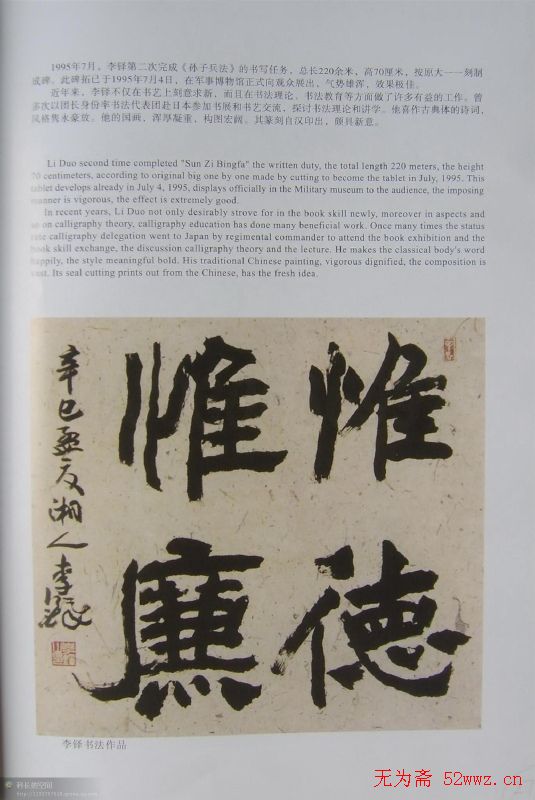 1995年7月，李铎第二次完成《孙子兵法》的书写任务，总长220余米，高70厘米，按原大一一刻制
成碑。此碑拓已于1995年7月4日，在军事博物馆正式向观众展出，气势雄浑，效果极佳。
近年来，李铎不仅在书艺上刻意求新，而且在书法理论、书法教育等方面做了许多有益的工作。曾
多次以团长身份率书法代表团赴日本参加书展和书艺交流，探讨书法理论和讲学。他喜作古典体的诗词，
风格隽永豪放。他的国画，浑厚凝重，构图宏阔。其篆刻自汉印出，颇具新意。
Li Duo second time completed "Sun Zi Bingfa" the written duty, the total length 220 meters, the height
70 centimeters, according to original big one by one made by cutting to become the tablet in July, 1995. This
tablet develops already in July 4, 1995, displays officially in the Military museum to the audience, the imposing
manner is vigorous, the effect is extremely good.
In recent years, Li Duo not only desirably strove for in the book skill newly, moreover in aspects and
so on calligraphy theory, calligraphy education has done many beneficial work. Once many times the status
rate calligraphy delegation went to Japan by regimental commander to attend the book exhibition and the
book skill exchange, the discussion calligraphy theory and the lecture. He makes the classical body's word
happily, the style meaningful bold. His traditional Chinese painting, vigorous dignified, the composition is
vast. Its seal cutting prints out from the Chinese, has the fresh idea.
惟德
惟廉
辛巳孟夏湘人李铎
李铎书法作品
科长的空间
无为斋 52wwz.cn